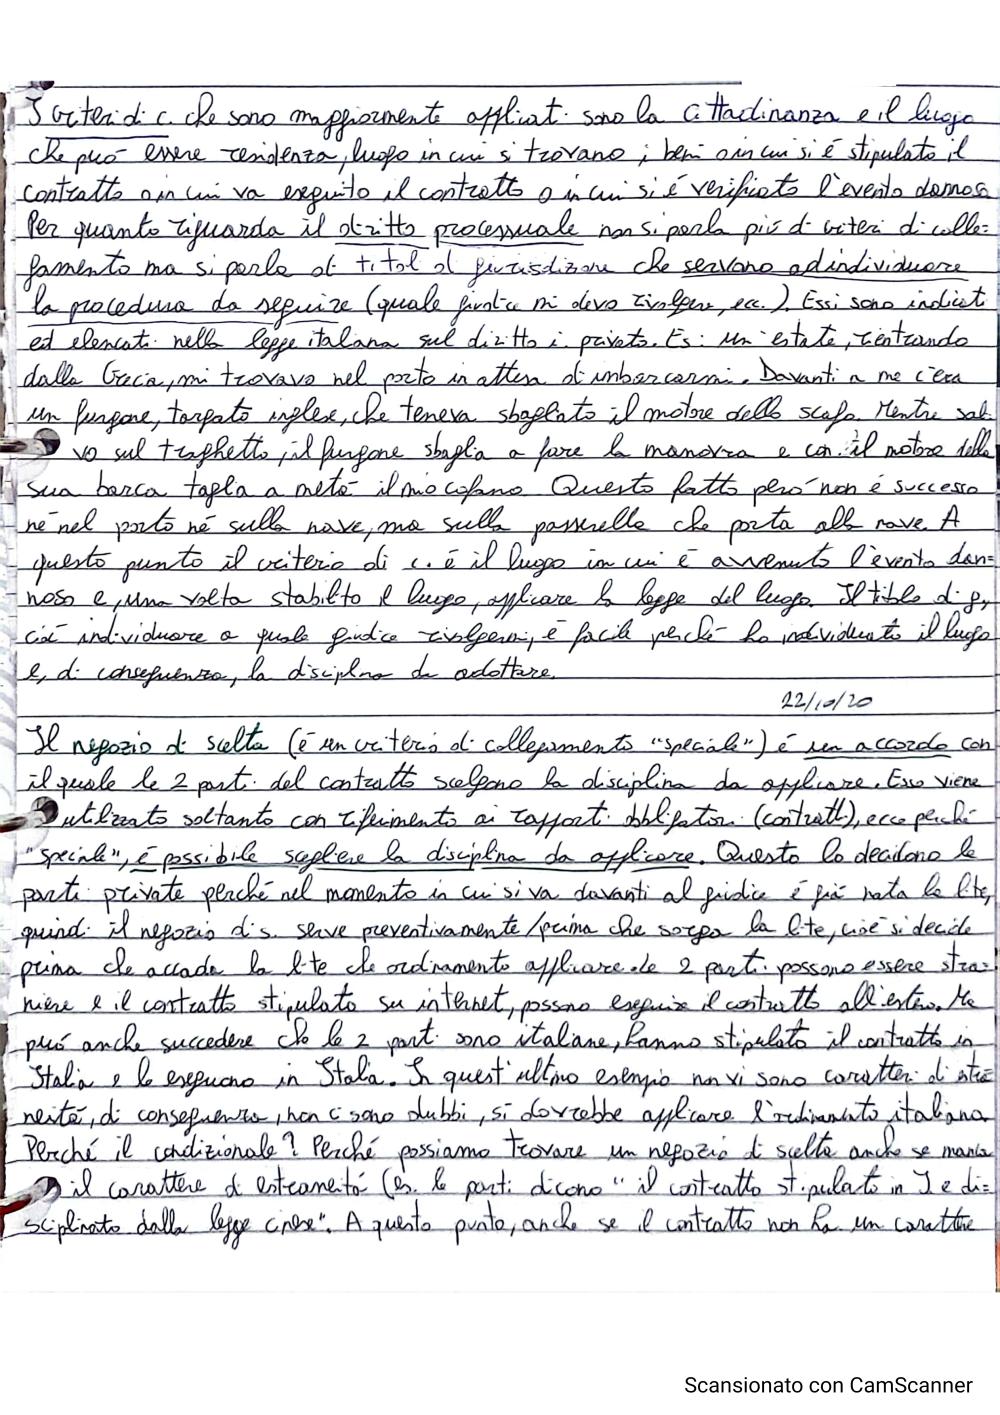 I criteri di c. che sono maggiormente applicati sono la cittadinanza e il luogo
che può essere residenza, luogo in cui si trovano i beni o in cui si è stipulato il
contratto o in cui va eseguito il contratto o in cui si è verificato l'evento dannoso
Per quanto riguarda il diritto processuale non si parla più di criteri di colle=
gamento ma si parla di titoli di giurisdizione che servono ad individuare
la procedura da seguire (quale giudice mi devo rivolgere, ecc.). Essi sono indicati
ed elencati nella legge italiana sul diritto i. privato. Es: un'estate, rientrando
dalla Grecia, mi trovavo nel porto in attesa di imbarcarmi. Davanti a me c'era
un furgone, targato inglese, che teneva sbagliato il motore dello scafo. Mentre sali-
vo sul traghetto, il furgone sbaglia a fare la manovra e con il motore della
sua barca taglia a metà il mio cofano. Questo fatto però non è successo
né nel porto né sulla nave, ma sulla passerella che porta alla nave. A
questo punto il criterio di c. è il luogo in cui è avvenuto l'evento dan=
noso e, una volta stabilito il luogo, applicare la legge del luogo. Il titolo di g.,
cioè individuare a quale giudice rivolgermi, è facile perché ho individuato il luogo
e, di conseguenza, la disciplina da adottare.
22/10/20
Il negozio di scelta (è un criterio di collegamento "speciale") è un accordo con
il quale le 2 parti del contratto scelgono la disciplina da applicare. Esso viene
utilizzato soltanto con riferimento ai rapporti obbligatori (contratti), ecco perché
"speciale", è possibile scegliere la disciplina da applicare. Questo lo decidono le
parti private perché nel momento in cui si va davanti al giudice è già nata la lite,
quindi il negozio di s. serve preventivamente/prima che sorga la lite, cioè si decide
prima che accada la lite che ordinamento applicare. Le 2 parti possono essere stra=
niere e il contratto stipulato su internet, possono eseguire il contratto all'estero. Ma
può anche succedere che le 2 parti sono italiane, hanno stipulato il contratto in
Italia e lo eseguono in Italia. In quest'ultimo esempio non vi sono caratteri di estra
neità, di conseguenza, non ci sono dubbi, si dovrebbe applicare l'ordinamento italiano.
Perché il condizionale? Perché possiamo trovare un negozio di scelta anche se manca
il carattere di estraneità (es. le parti dicono "il contratto stipulato in I e di=
sciplinato dalla legge cinese". A questo punto, anche se il contratto non ha un carattere
Scansionato con CamScanner